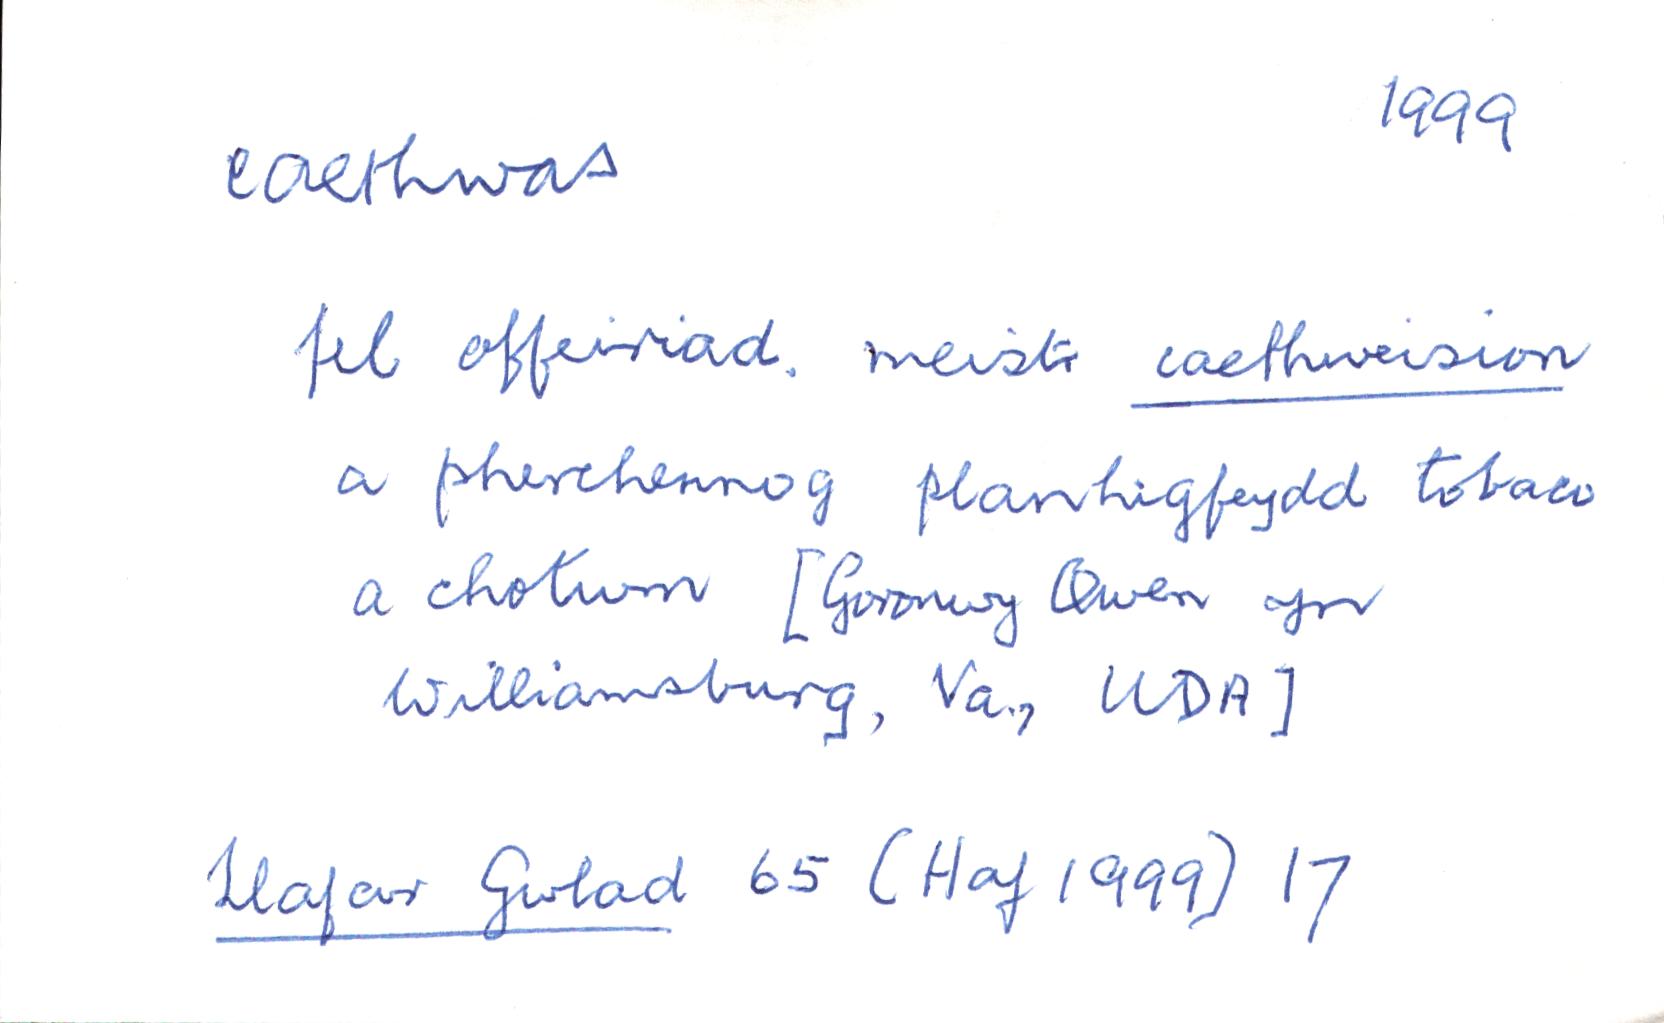 1999
caethwas
fel offeiriad, meistr caethweision
a pherchennog planhigfeydd tobaco
a chotwm [Goronwy Owen yn
Williamsburg, Va., UDA]
Llafar Gwlad 65 (Haf 1999) 17